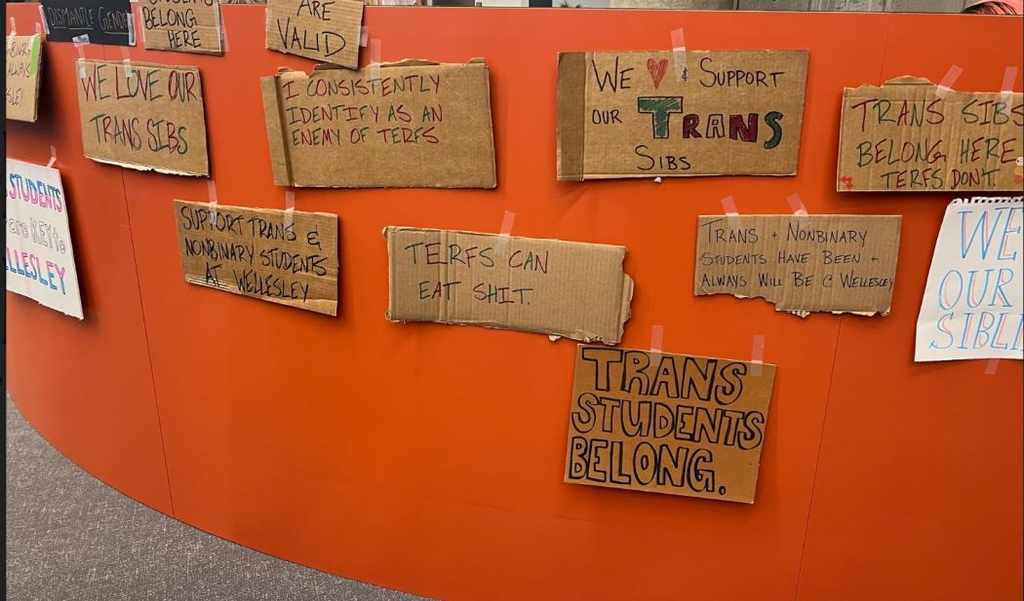 DISMANTLE GENDER
BELONG
HERE
ARE
VALID
WE LOVE OUR
TRANS SIBS
I CONSISTENTLY
IDENTIFY AS AN
ENEMY OF TERFS
WE ♥ & SUPPORT
OUR TRANS
SIBS
TRANS SIBS
BELONG HERE
TERFS DON'T.
STUDENTS
are KEY to
LLESLEY
SUPPORT TRANS &
NONBINARY STUDENTS
AT WELLESLEY
TERFS CAN
EAT SHIT.
TRANS + NONBINARY
STUDENTS HAVE BEEN +
ALWAYS WILL BE @ WELLESLEY
WE
OUR
SIBLI
TRANS
STUDENTS
BELONG.